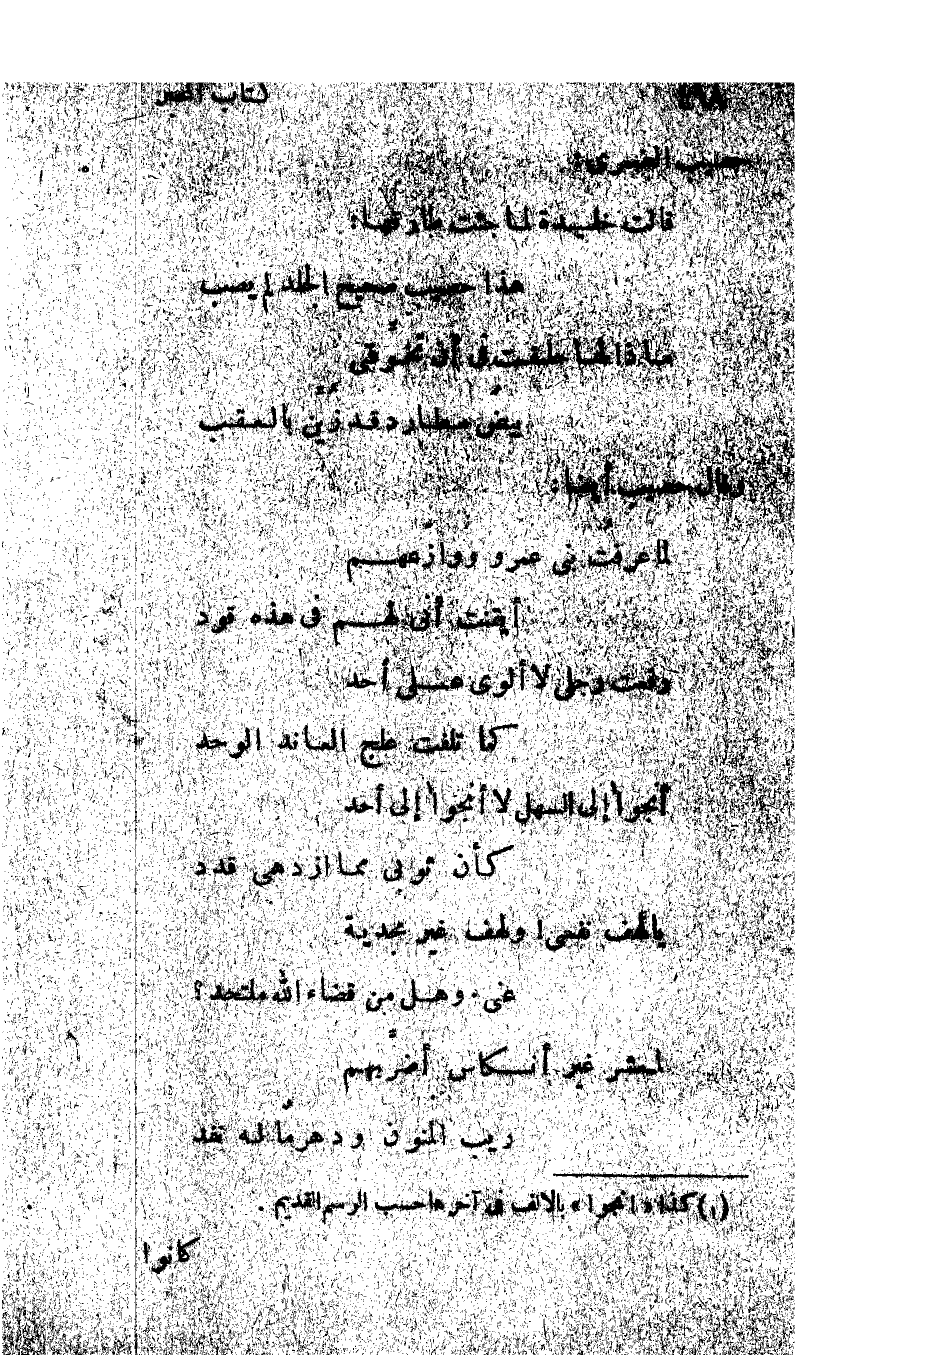 ٤٩٨ كتاب المحبر
حبيب الضمرى:
قالت خليدة لما جئت طارقها:
هذا حبيب صحيح الجلد لم يصب
ماذا لها خلفت فى أن
بيض مطارد قد زُيّن بالعقب
وقال حبيب أيضا:
لما عرفتُ بنى عمرو ووازعهم
أيقنت أنّى لهم فى هذه قود
وقمت وجل لا ألوى على أحد
كما تلفت علج العانة الوحد
أنجوا إلى السهل لا أنجوا إلى أحد
كأن ثوبى مما ازدهى قدد
يالهف نفسى ولهف غير مجدية
عنى وهل من قضاء الله ملتحد؟
لمعشر غير أنكاس أضرّ بهم
ريب المنون ودهر ماله
(١) كذا « انجوا » بالالف فى آخرها حسب الرسم القديم .
كانوا